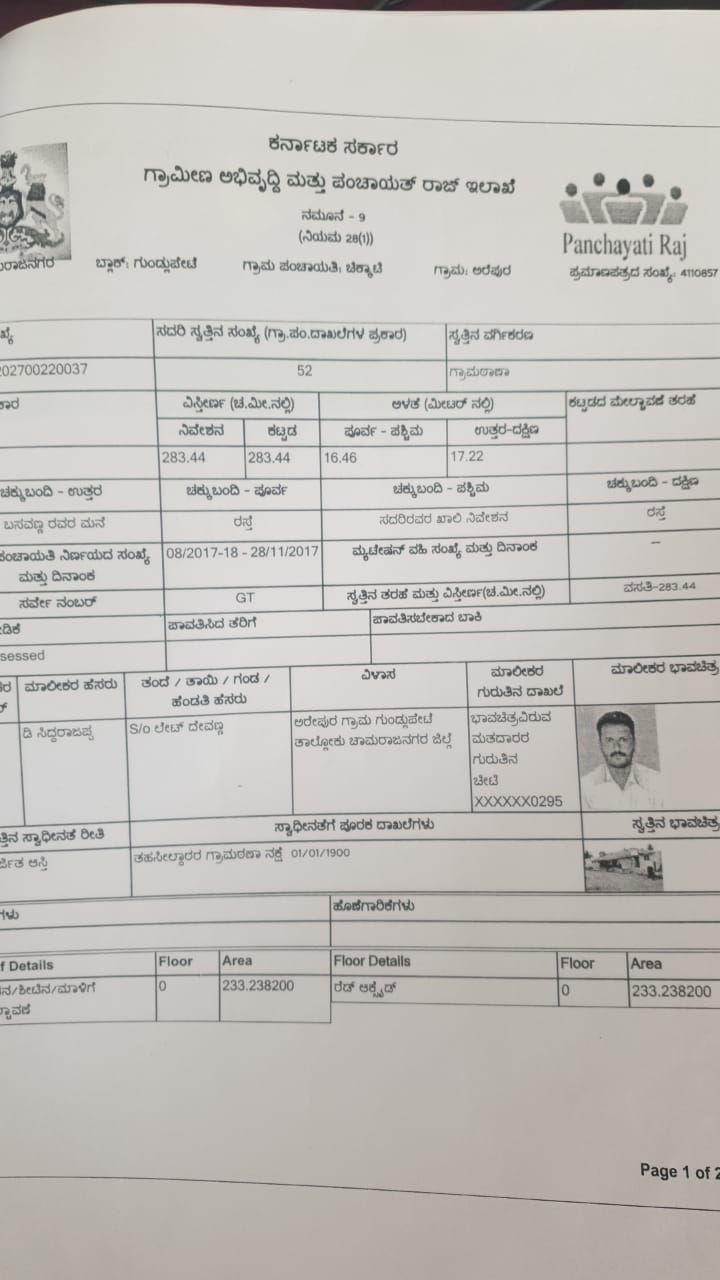 ಕರ್ನಾಟಕ ಸರ್ಕಾರ
ಗ್ರಾಮೀಣ ಅಭಿವೃದ್ಧಿ ಮತ್ತು ಪಂಚಾಯತ್ ರಾಜ್ ಇಲಾಖೆ
ನಮೂನೆ - 9
(ನಿಯಮ 28(1))
Panchayati Raj
ರಾಜನಗರ ಬ್ಲಾಕ್: ಗುಂಡ್ಲುಪೇಟೆ ಗ್ರಾಮ ಪಂಚಾಯತಿ: ಚಿಕ್ಕಾಟಿ ಗ್ರಾಮ: ಅರೆಪುರ ಪ್ರಮಾಣಪತ್ರದ ಸಂಖ್ಯೆ: 4110857
ಖ್ಯೆ ಸದರಿ ಸ್ವತ್ತಿನ ಸಂಖ್ಯೆ (ಗ್ರಾ.ಪಂ.ದಾಖಲೆಗಳ ಪ್ರಕಾರ) ಸ್ವತ್ತಿನ ವರ್ಗಿಕರಣ
02700220037 52 ಗ್ರಾಮಠಾಣಾ
ಕಾರ ವಿಸ್ತೀರ್ಣ (ಚ.ಮೀ.ನಲ್ಲಿ) ಅಳತೆ (ಮೀಟರ್ ನಲ್ಲಿ) ಕಟ್ಟಡದ ಮೇಲ್ಚಾವಣಿ ತರಹೆ
ನಿವೇಶನ ಕಟ್ಟಡ ಪೂರ್ವ - ಪಶ್ಚಿಮ ಉತ್ತರ-ದಕ್ಷಿಣ
283.44 283.44 16.46 17.22
ಚಕ್ಕುಬಂದಿ - ಉತ್ತರ ಚಕ್ಕುಬಂದಿ - ಪೂರ್ವ ಚಕ್ಕುಬಂದಿ - ಪಶ್ಚಿಮ ಚಕ್ಕುಬಂದಿ - ದಕ್ಷಿಣ
ಬಸವಣ್ಣ ರವರ ಮನೆ ರಸ್ತೆ ಸದರಿರವರ ಖಾಲಿ ನಿವೇಶನ ರಸ್ತೆ
ಪಂಚಾಯತಿ ನಿರ್ಣಯದ ಸಂಖ್ಯೆ 08/2017-18 - 28/11/2017 ಮ್ಯುಟೇಷನ್ ವಹಿ ಸಂಖ್ಯೆ ಮತ್ತು ದಿನಾಂಕ --
ಮತ್ತು ದಿನಾಂಕ
ಸರ್ವೇ ನಂಬರ್ GT ಸ್ವತ್ತಿನ ತರಹೆ ಮತ್ತು ವಿಸ್ತೀರ್ಣ(ಚ.ಮೀ.ನಲ್ಲಿ) ವಸತಿ-283.44
ಡಿಕೆ ಪಾವತಿಸಿದ ತೆರಿಗೆ ಪಾವತಿಸಬೇಕಾದ ಬಾಕಿ
sessed
ಮಾಲೀಕರ ಹೆಸರು ತಂದೆ / ತಾಯಿ / ಗಂಡ / ವಿಳಾಸ ಮಾಲೀಕರ ಮಾಲೀಕರ ಭಾವಚಿತ್ರ
ಹೆಂಡತಿ ಹೆಸರು ಗುರುತಿನ ದಾಖಲೆ
ಡಿ ಸಿದ್ದರಾಜಪ್ಪ S/o ಲೇಟ್ ದೇವಣ್ಣ ಅರೇಪುರ ಗ್ರಾಮ ಗುಂಡ್ಲುಪೇಟೆ ಭಾವಚಿತ್ರವಿರುವ
ತಾಲ್ಲೋಕು ಚಾಮರಾಜನಗರ ಜಿಲ್ಲೆ ಮತದಾರರ
ಗುರುತಿನ
ಚೀಟಿ
XXXXXX0295
ತ್ತಿನ ಸ್ವಾಧೀನತೆ ರೀತಿ ಸ್ವಾಧೀನತೆಗೆ ಪೂರಕ ದಾಖಲೆಗಳು ಸ್ವತ್ತಿನ ಭಾವಚಿತ್ರ
ರ್ಜಿತ ಆಸ್ತಿ ತಹಸೀಲ್ದಾರರ ಗ್ರಾಮಠಣಾ ನಕ್ಷೆ 01/01/1900
ಗಳು ಹೊಣೆಗಾರಿಕೆಗಳು
f Details Floor Area Floor Details Floor Area
ನ/ಶೀಟಿನ/ಮಾಳಿಗೆ 0 233.238200 ರೆಡ್ ಆಕ್ಸೈಡ್ 0 233.238200
ಛಾವಣಿ
Page 1 of 2